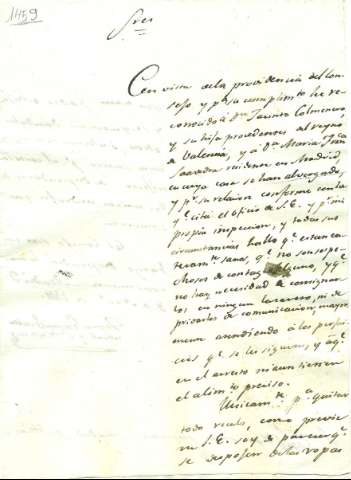 1459
Sres
Con vista de la providencia del Con
sejo y pa su cumplimto he re
conocido á Dn Jacinto Colmenero
y su hija procedentes del reyno
de Valencia, y a Da María Franca
Saavedra residente en Madrid,
en cuya casa se han alvergado,
y pr su relacion conforme con la
qe cita el oficio de S.E. y pr mi
propia inspeccion, y todas sus
circunstancias hallo qe estan en
teramte sanas, qe no son sospe
chosos de contagio alguno, y qe
no hay necesidad de consignar
los en ningun lazareto, ni de
privarlos de comunicacion, mayor
mente atendiendo á los perjui
cios qe se les siguen, y á qe
en el arresto ni aun tienen
el alimto preciso.
Unicamte pa quitar
todo recelo, como previe
ne S.E. soy de parecer qe
se despojen de las ropas